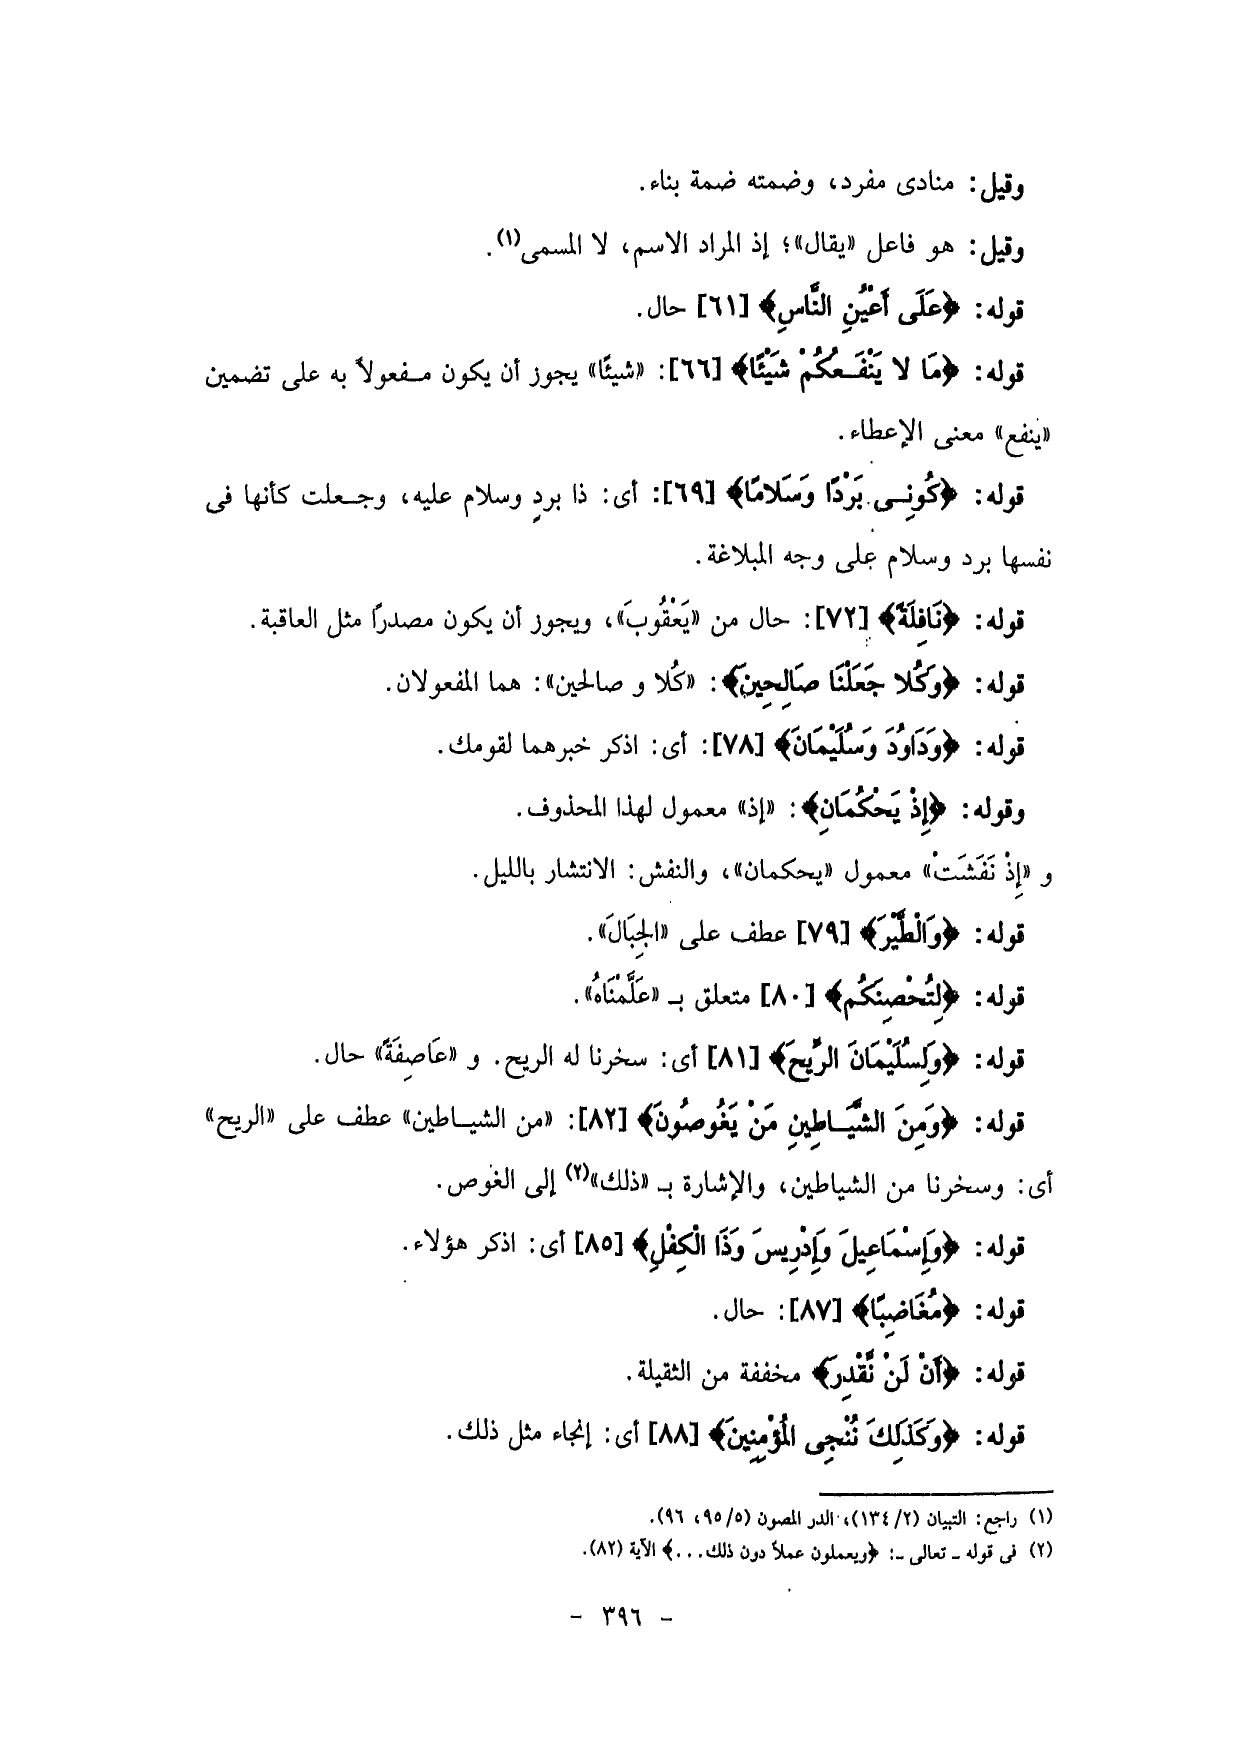 وقيل: منادى مفرد، وضمته ضمة بناء.
وقيل: هو فاعل «يقال»؛ إذ المراد الاسم، لا المسمى(١).
قوله: ﴿عَلَى أَعْيُنِ النَّاسِ﴾ [٦١] حال.
قوله: ﴿مَا لا يَنْفَعُكُمْ شَيْئًا﴾ [٦٦]: «شيئًا» يجوز أن يكون مفعولاً به على تضمين
«ينفع» معنى الإعطاء.
قوله: ﴿كُونِى بَرْدًا وَسَلامًا﴾ [٦٩]: أى: ذا بردٍ وسلام عليه، وجعلت كأنها فى
نفسها برد وسلام على وجه المبلاغة.
قوله: ﴿نَافِلَةً﴾ [٧٢]: حال من «يَعْقُوبَ»، ويجوز أن يكون مصدرًا مثل العاقبة.
قوله: ﴿وَكُلا جَعَلْنَا صَالِحِينَ﴾: «كُلا و صالحين»: هما المفعولان.
قوله: ﴿وَدَاوُدَ وَسُلَيْمَانَ﴾ [٧٨]: أى: اذكر خبرهما لقومك.
وقوله: ﴿إِذْ يَحْكُمَانِ﴾: «إذ» معمول لهذا المحذوف.
و «إِذْ نَفَشَتْ» معمول «يحكمان»، والنفش: الانتشار بالليل.
قوله: ﴿وَالْطَّيْرَ﴾ [٧٩] عطف على «الجِبَالَ».
قوله: ﴿لِتُحْصِنَكُم﴾ [٨٠] متعلق بـ «عَلَّمْنَاهُ».
قوله: ﴿وَلِسُلَيْمَانَ الرِّيحَ﴾ [٨١] أى: سخرنا له الريح. و «عَاصِفَةً» حال.
قوله: ﴿وَمِنَ الشَّيَاطِينِ مَنْ يَغُوصُونَ﴾ [٨٢]: «من الشياطين» عطف على «الريح»
أى: وسخرنا من الشياطين، والإشارة بـ «ذلك»(٢) إلى الغوص.
قوله: ﴿وَإِسْمَاعِيلَ وَإِدْرِيسَ وَذَا الْكِفْلِ﴾ [٨٥] أى: اذكر هؤلاء.
قوله: ﴿مُغَاضِبًا﴾ [٨٧]: حال.
قوله: ﴿أَنْ لَنْ نَّقْدِرَ﴾ مخففة من الثقيلة.
قوله: ﴿وَكَذَلِكَ نُنْجِى الْمُؤْمِنِينَ﴾ [٨٨] أى: إنجاء مثل ذلك.
(١) راجع: التبيان (١٣٤/٢)، الدر المصون (٩٥/٥، ٩٦).
(٢) فى قوله ـ تعالى ـ: ﴿ويعملون عملاً دون ذلك...﴾ الآية (٨٢).
- ٣٩٦ -